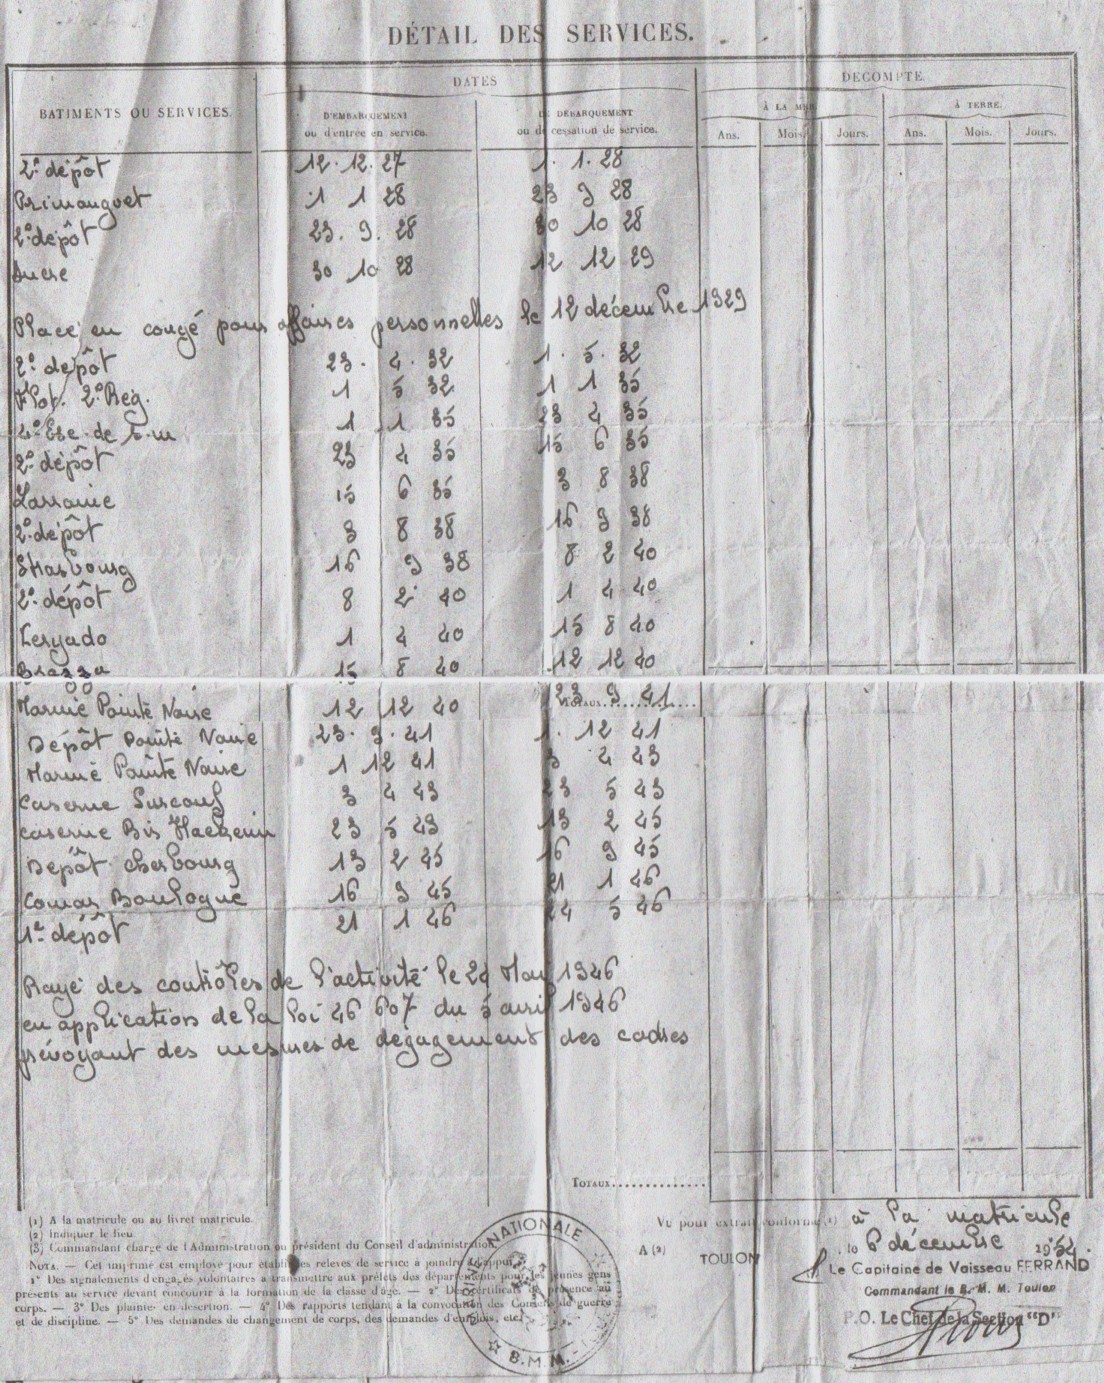 DÉTAIL DES SERVICES.
BATIMENTS OU SERVICES. DATES DECOMPTE.
D'EMBARQUEMENT ou d'entrée en service. DE DÉBARQUEMENT ou de cessation de service. À LA MER À TERRE.
Ans. Mois. Jours. Ans. Mois. Jours.
2e dépôt 12. 12. 27 1. 1. 28
Primauguet 1 1 28 23 9 28
2e dépôt 23. 9. 28 30 10 28
Sucre 30 10 28 12 12 29
Placé en congé pour affaires personnelles le 12 décembre 1929
2e dépôt 23. 4. 32 1. 5. 32
Flot. 2e Reg. 1 5 32 1 1 35
4e Esc. de s.m 1 1 35 23 4 35
2e dépôt 23 4 35 15 6 35
15 6 35 3 8 38
2e dépôt 3 8 38 16 9 38
Strasbourg 16 9 38 8 2 40
2e dépôt 8 2 40 1 4 40
1 4 40 15 8 40
Brazza 15 8 40 12 12 40
Marine Pointe Noire 12 12 40 23 9 41
Totaux..........
Dépôt Pointe Noire 23. 9. 41 1. 12 41
Marine Pointe Noire 1 12 41 3 4 43
Caserne Surcouf 3 4 43 23 5 43
Caserne Bir Hacheim 23 5 43 13 2 45
Dépôt Cherbourg 13 2 45 16 9 45
Comar Boulogne 16 9 45 21 1 46
1er dépôt 21 1 46 24 5 46
Rayé des contrôles de l'activité le 24 Mai 1946
en application de la loi 46 607 du 5 avril 1946
prévoyant des mesures de dégagement des cadres
Totaux..........
(1) A la matricule ou au livret matricule.
(2) Indiquer le lieu
(3) Commandant chargé de l'Administration ou président du Conseil d'administration
Nota. — Cet imprimé est employé pour établir les relevés de service à joindre à l'appui
1° Des signalements d'engagés volontaires à transmettre aux préfets des départements pour les jeunes gens
présents au service devant concourir à la formation de la classe d'âge. — 2° Des certificats de présence au
corps. — 3° Des plaintes en désertion. — 4° Des rapports tendant à la convocation des Conseils de guerre
et de discipline. — 5° Des demandes de changement de corps, des demandes d'emplois, etc.
NATIONALE
B.M.M.
Vu pour extrait conforme (1) à la matricule
A (2) TOULON, le 6 décembre 1954.
Le Capitaine de Vaisseau FERRAND
Commandant le B.M.M. Toulon
P.O. Le Chef de la Section "D"